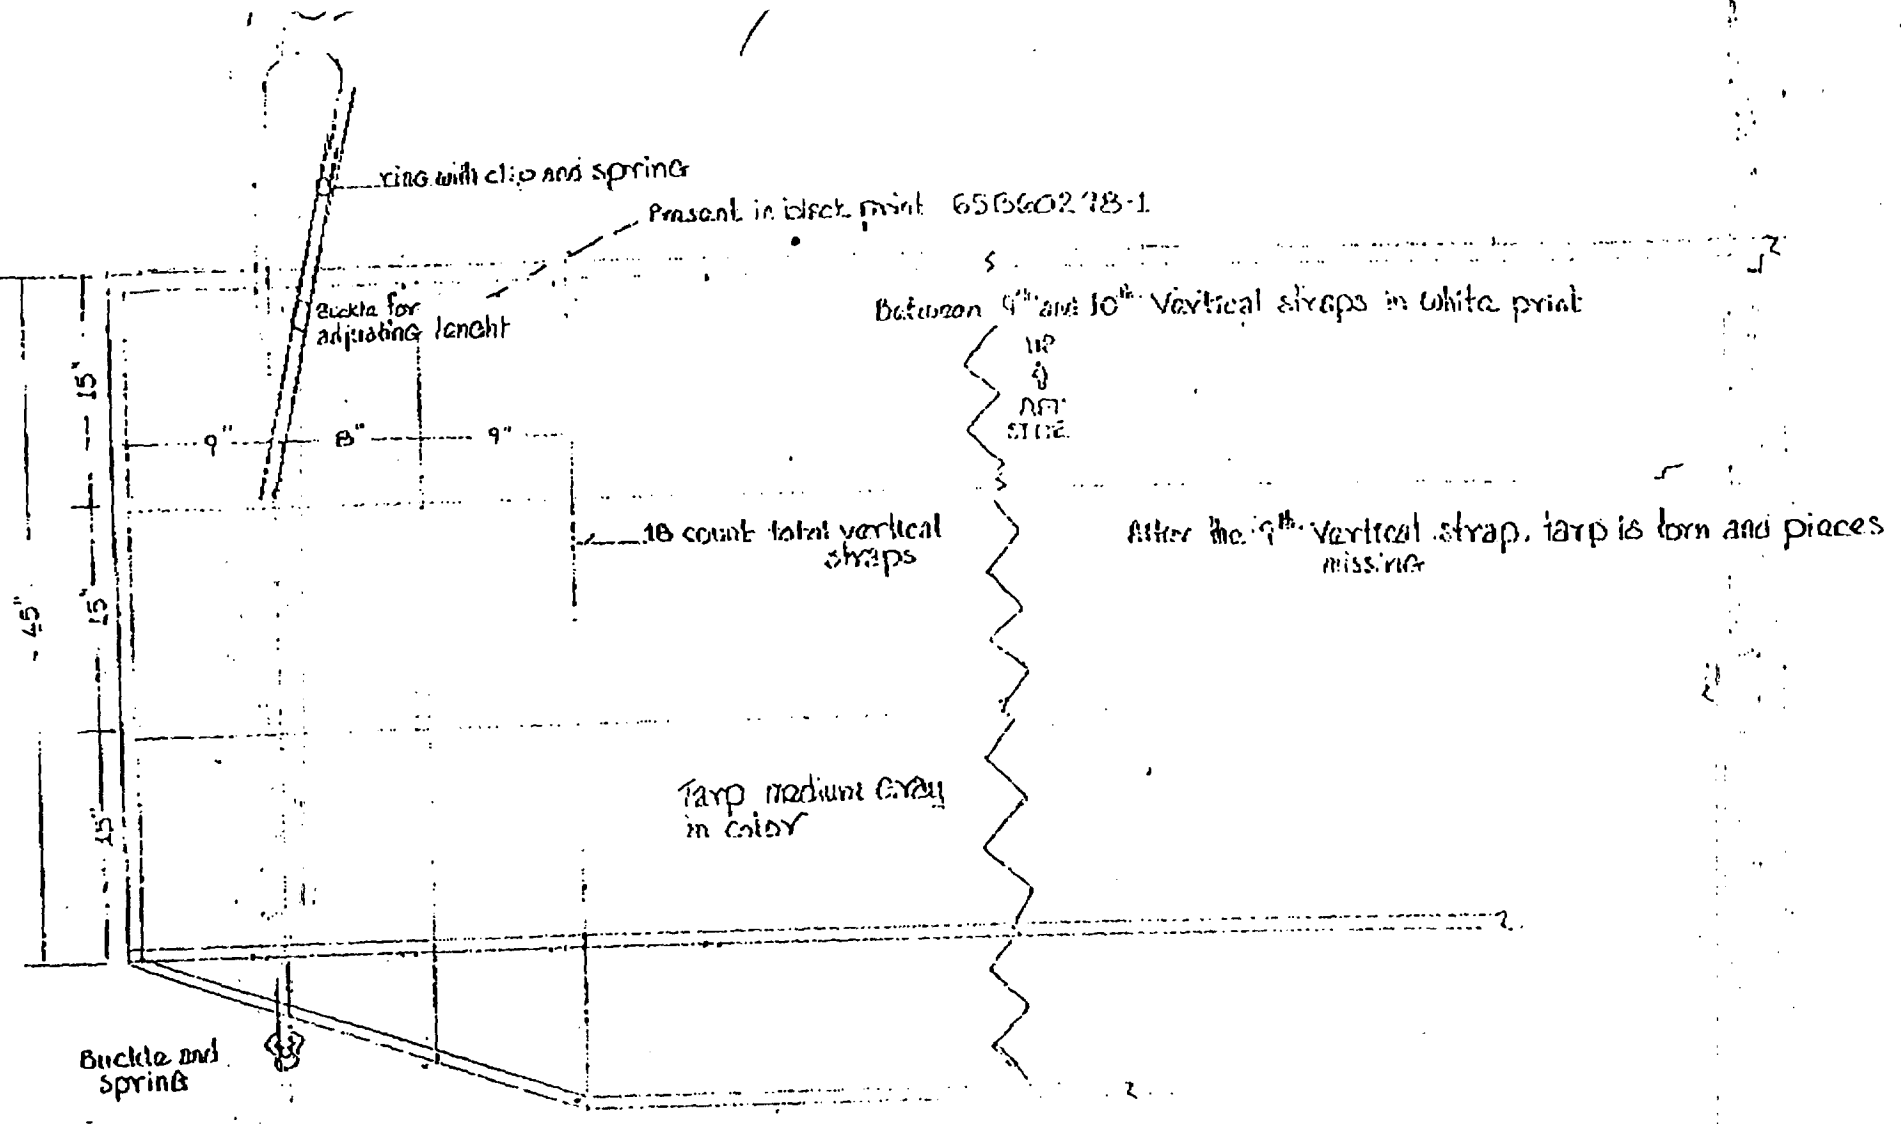 ring with clip and spring
Present in black print 65B60278-1
Buckle for
adjusting lenght
Between 9th and 10th Vertical straps in white print
UP
AFT
SIDE
15"
9" 8" 9"
18 count total vertical
straps
After the 9th vertical strap, tarp is torn and pieces
missing
45"
15"
Tarp medium Gray
in color
15"
Buckle and
spring